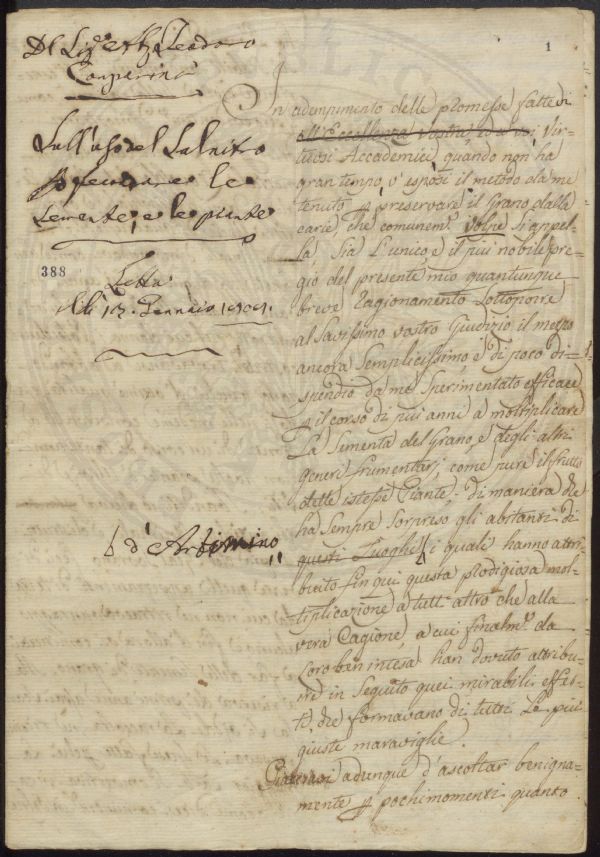 Del Sig.e Ab. Teodoro
Comparini
Sull'uso del Salnitro
p fecondare le
Semente, e le piante
388
Letta
Alli 13. Gennaio 1808.
b d'Artimino
1
In adempimento delle promesse fatte di
all'Eccellenza Vostra ed a voi Vir-
tuosi Accademici, quando non ha
gran tempo, v'esposi il metodo da me
tenuto p preservare il Grano dalla
carie che comunem.e Volpe s'appel-
la, Sia l'unico, e il più nobile pre-
gio del presente mio quantunque
breve Ragionamento Sottoporre
al Savissimo vostro Giudizio il mezzo
ancora Semplicissimo, e di poco di-
spendio da me Sperimentato efficace
p il corso di più anni a moltiplicare
La Sementa del Grano, e degli altri
generi frumentarj, come pure il frutto
delle istesse Piante: di maniera che
ha Sempre Sorpreso gli abitanti di
questi Luoghi b i quali hanno attri-
buito fin qui questa prodigiosa mol-
tiplicazione a tutt'altro che alla
vera Cagione, a cui finalm.e da
Loro ben intesa han dovuto attribu-
ire in Seguito quei mirabili effet-
ti, che formavano di tutti Le più
giuste maraviglie.
adunque d'ascoltar benigna-
mente p pochi momenti quanto